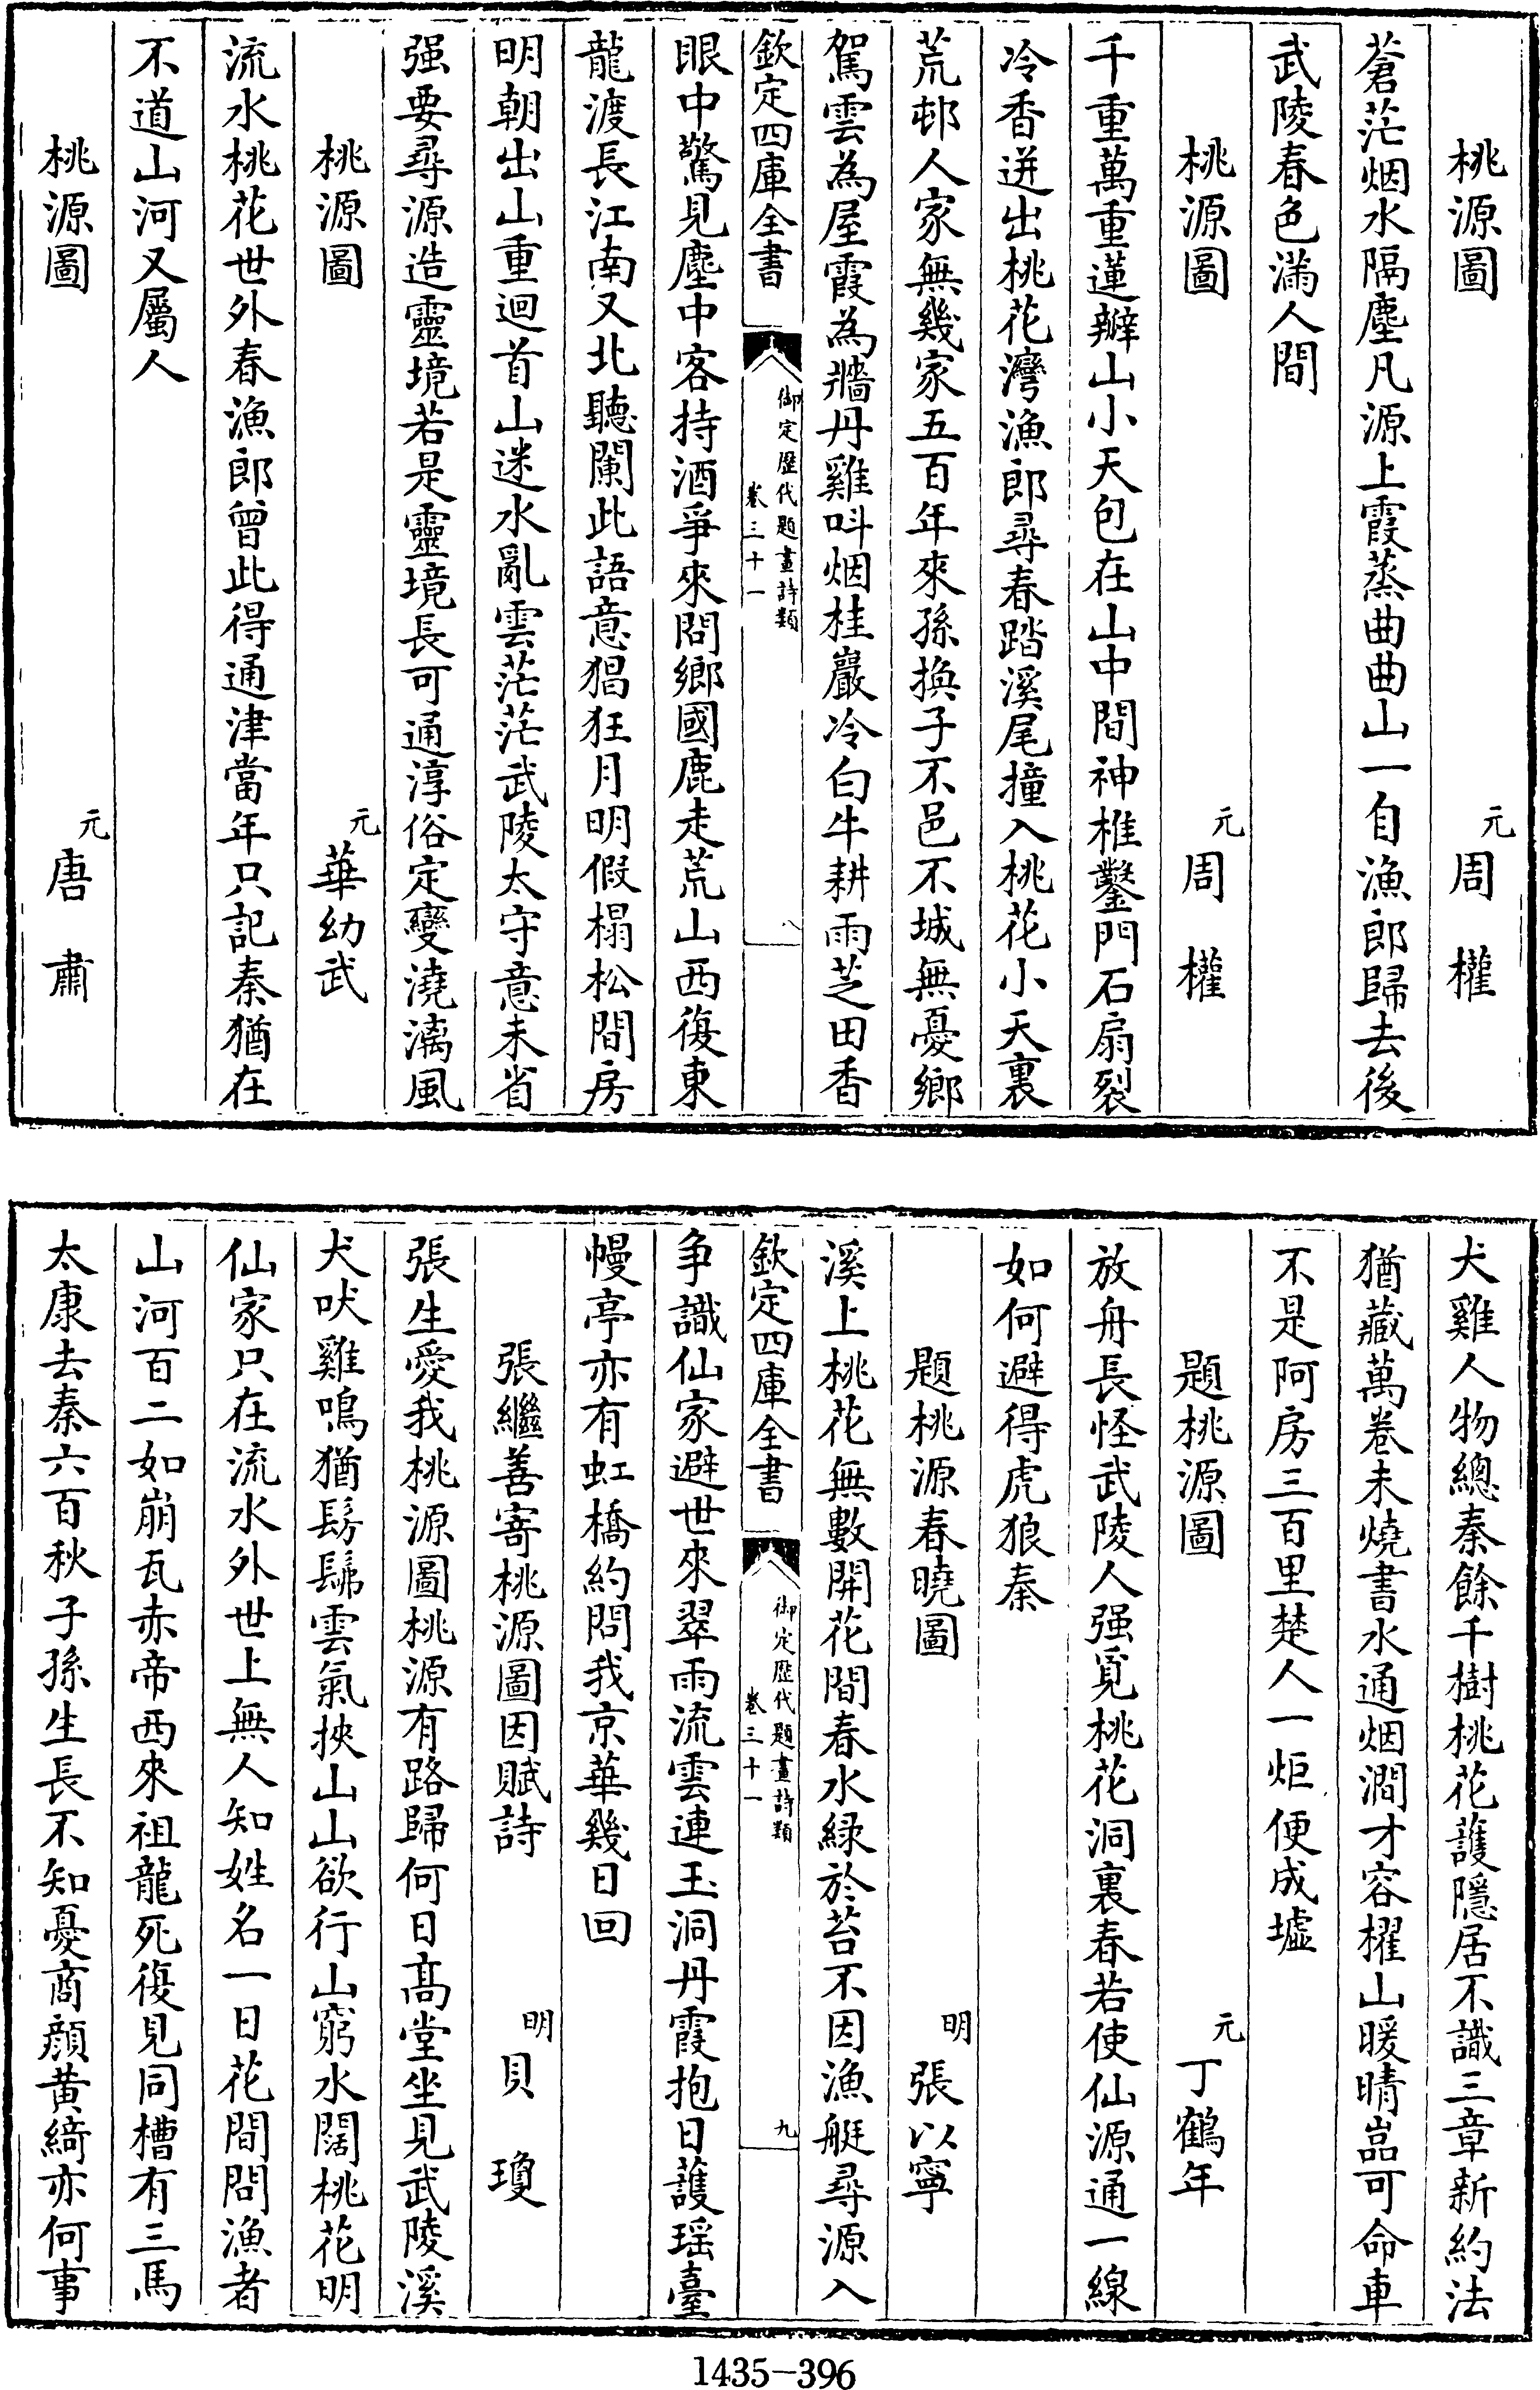 桃源圖　元周權
蒼茫烟水隔塵凡源上霞蒸曲曲山一自漁郎歸去後
武陵春色滿人間
桃源圖　元周權
千重萬重蓮瓣山小天包在山中間神椎鑿門石扇裂
冷香迸出桃花灣漁郎尋春踏溪尾撞入桃花小天裏
荒邨人家無幾家五百年來孫換子不邑不城無憂鄉
駕雲為屋霞為牆丹雞叫烟桂巖冷白牛耕雨芝田香
欽定四庫全書　御定歷代題畫詩類卷三十一　八
眼中驚見塵中客持酒爭來問鄉國鹿走荒山西復東
龍渡長江南又北聽闌此語意猖狂月明假榻松間房
明朝出山重迴首山迷水亂雲茫茫武陵太守意未省
强要尋源造靈境若是靈境長可通淳俗定變澆漓風
桃源圖　元華幼武
流水桃花世外春漁郎曾此得通津當年只記秦猶在
不道山河又屬人
桃源圖　元唐肅
犬雞人物總秦餘千樹桃花護隱居不識三章新約法
猶藏萬卷未燒書水通烟澗才容櫂山暖晴嵓可命車
不是阿房三百里楚人一炬便成墟
題桃源圖　元丁鶴年
放舟長怪武陵人强覓桃花洞裏春若使仙源通一線
如何避得虎狼秦
題桃源春曉圖　明張以寧
溪上桃花無數開花間春水綠於苔不因漁艇尋源入
欽定四庫全書　御定歷代題畫詩類卷三十一　九
争識仙家避世來翠雨流雲連玉洞丹霞抱日護瑶臺
幔亭亦有虹橋約問我京華幾日回
張繼善寄桃源圖因賦詩　明貝瓊
張生愛我桃源圖桃源有路歸何日髙堂坐見武陵溪
犬吠雞鳴猶髣髴雲氣挾山山欲行山窮水闊桃花明
仙家只在流水外世上無人知姓名一日花間問漁者
山河百二如崩瓦赤帝西來祖龍死復見同槽有三馬
太康去秦六百秋子孫生長不知憂商顔黄綺亦何事
1435-396